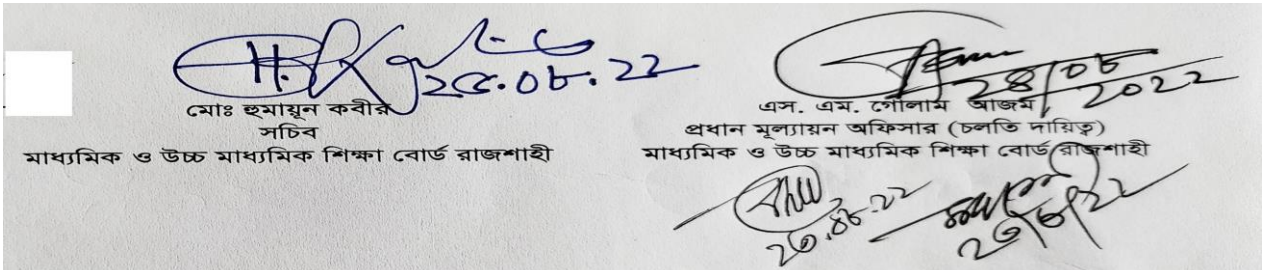 ২৫.০৮.২২
মোঃ হুমায়ূন কবীর
সচিব
মাধ্যমিক ও উচ্চ মাধ্যমিক শিক্ষা বোর্ড রাজশাহী
২৪/০৮/২০২২
এস. এম. গোলাম আজম
প্রধান মূল্যায়ন অফিসার (চলতি দায়িত্ব)
মাধ্যমিক ও উচ্চ মাধ্যমিক শিক্ষা বোর্ড রাজশাহী